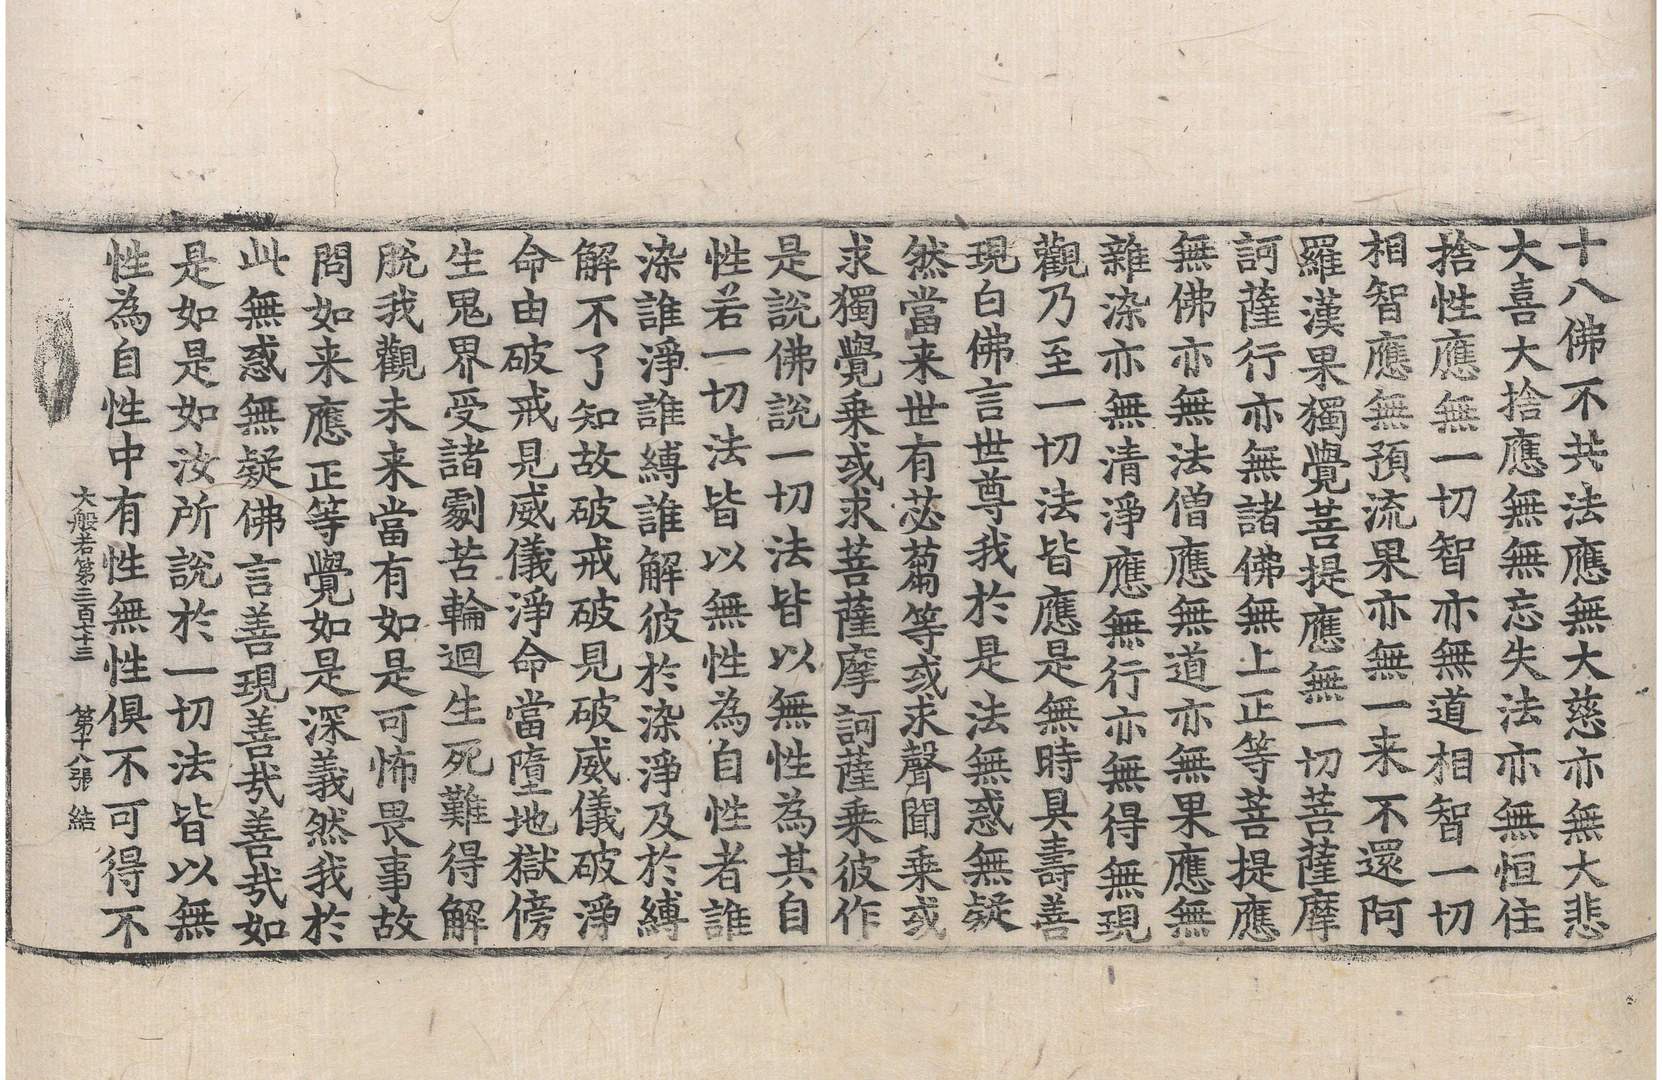 十八佛不共法應無大慈亦無大悲
大喜大捨應無無忘失法亦無恒住
捨性應無一切智亦無道相智一切
相智應無預流果亦無一来不還阿
羅漢果獨覺菩提應無一切菩薩摩
訶薩行亦無諸佛無上正等菩提應
無佛亦無法僧應無道亦無果應無
雜染亦無清淨應無行亦無得無現
觀乃至一切法皆應是無時具壽善
現白佛言世尊我於是法無惑無疑
然當来世有苾蒭等或求聲聞乗或
求獨覺乗或求菩薩摩訶薩乗彼作
是說佛說一切法皆以無性為其自
性若一切法皆以無性為自性者誰
染誰淨誰縛誰解彼於染淨及於縛
解不了知故破戒破見破威儀破淨
命由破戒見威儀淨命當墮地獄傍
生鬼界受諸劇苦輪迴生死難得解
脫我觀未来當有如是可怖畏事故
問如来應正等覺如是深義然我於
此無惑無疑佛言善現善㢤善㢤如
是如是如汝所說於一切法皆以無
性為自性中有性無性俱不可得不
大般若第三百六十三 第十八張 結